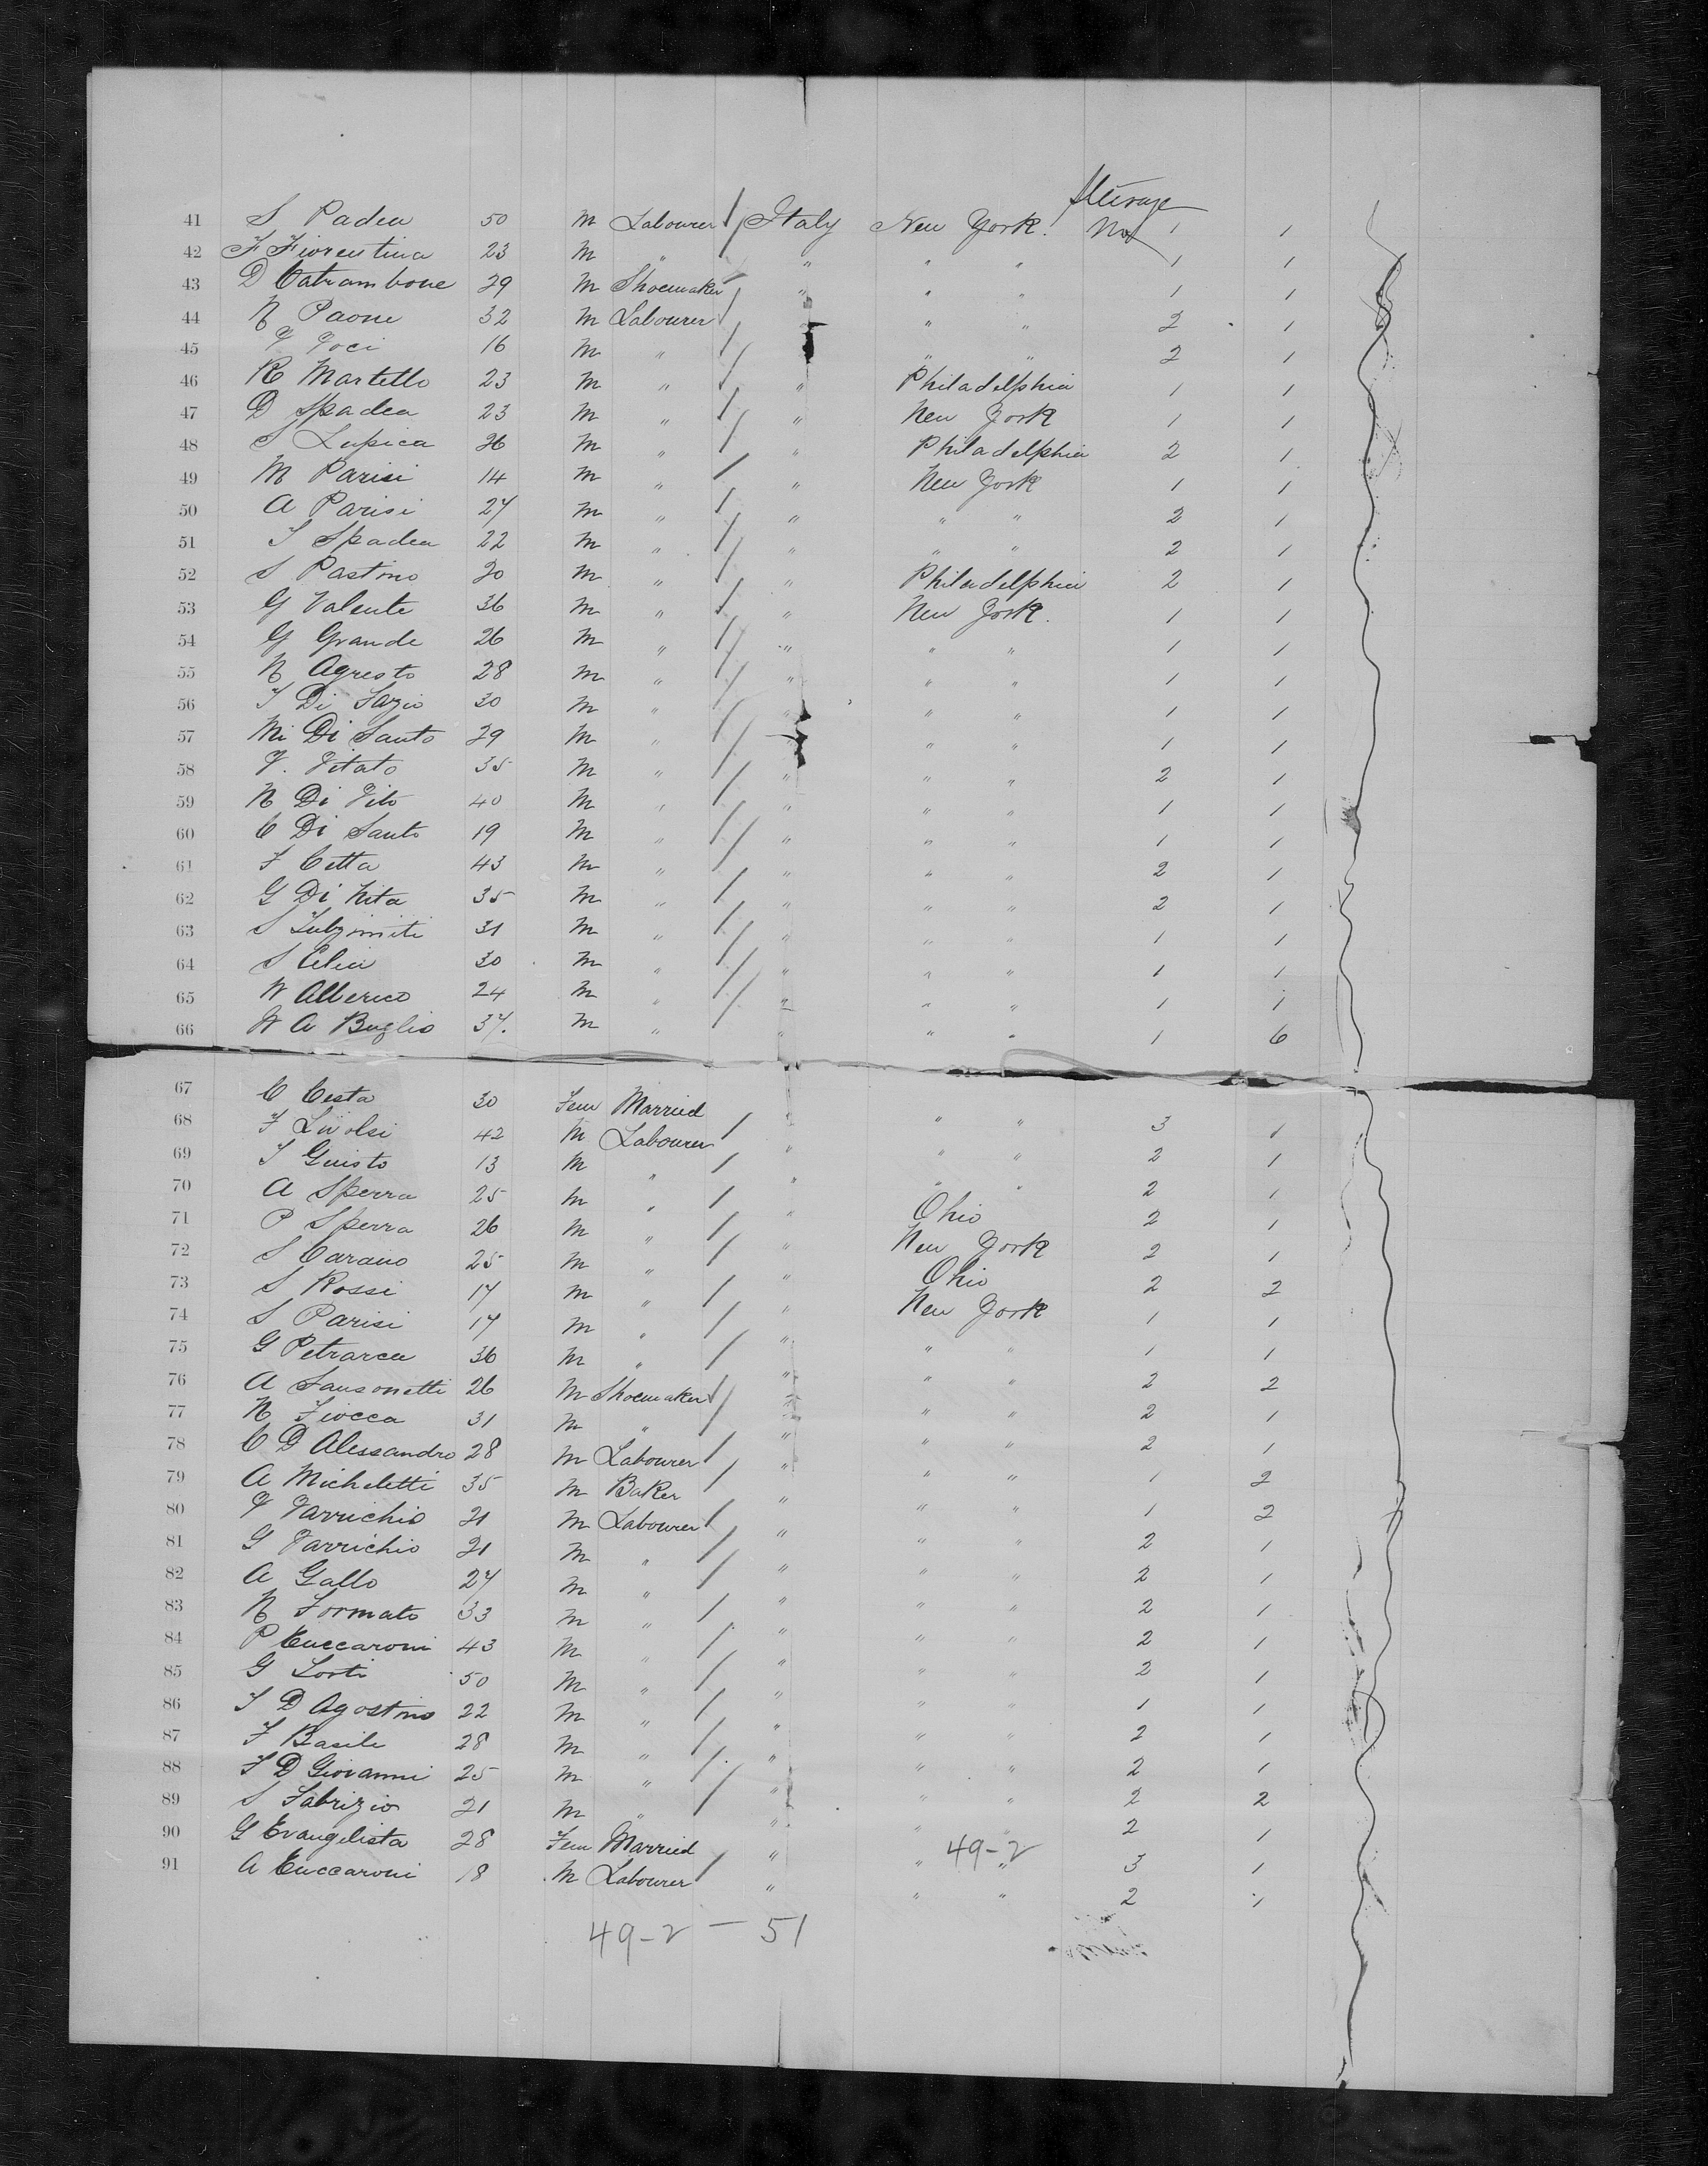 Steerage
41 S Padea 50 M Labourer / Italy New York. No 1 1
42 F Fiorentina 23 M " / " " " 1 1
43 D Catrambone 29 M Shoemaker / " " " 1 1
44 N Paone 32 M Labourer / " " 2 1
45 V Voci 16 M " / " " 2 1
46 R Martello 23 M " / " Philadelphia 1 1
47 D Spadea 23 M " / " New York 1 1
48 S Lupica 26 M " / " Philadelphia 2 1
49 M Parisi 14 M " / " New York 1 1
50 A Parisi 27 M " / " " " 2 1
51 S Spadea 22 M " / " " " 2 1
52 S Pastino 20 M " / " Philadelphia 2 1
53 G Valente 36 M " / " New York. 1 1
54 G Grande 26 M " / " " " 1 1
55 N Agresto 28 M " / " " " 1 1
56 Di 30 M " / " " 1 1
57 Mi Di Santo 29 M " / " " " 1 1
58 V. Vitato 35 M " / " " " 2 1
59 N Di Vito 40 M " / " " " 1 1
60 C Di Santo 19 M " / " " " 1 1
61 F Cetta 43 M " / " " " 2 1
62 G Di Nita 35 M " / " " " 2 1
63 S 31 M " / " " " 1 1
64 S Celia 30 M " / " " " 1 1
65 N Alberico 24 M " / " " " 1 1
66 N A Buglio 37. M " " " " 1 6
67 C Cesta 30 Fem Married " " " 3 1
68 F Livolsi 42 M Labourer / " " " 2 1
69 S Guisto 13 M " / " " " 2 1
70 A Sperra 25 M " / " Ohio 2 1
71 P Sperra 26 M " / " New York 2 1
72 S Carano 25 M " / " Ohio 2 2
73 S Rossi 17 M " / " New York 1 1
74 S Parisi 17 M " / " " " 1 1
75 G Petrarca 36 M " / " " " 2 2
76 A Sansonetti 26 M Shoemaker / " " " 2 1
77 N Fiocca 31 M " / " " " 2 1
78 C D Alessandro 28 M Labourer / " " " 1 2
79 A Micheletti 35 M Baker / " " " 1 2
80 V Varrichio 21 M Labourer / " " " 2 1
81 G Varrichio 21 M " / " " " 2 1
82 A Gallo 27 M " / " " " 2 1
83 N Formato 33 M " / " " " 2 1
84 P Cuccaroni 43 M " / " " " 2 1
85 G Sorti 50 M " / " " " 1 1
86 S D Agostino 22 M " / " " " 2 1
87 F Basile 28 M " / " " " 2 1
88 S D Giovanni 25 M " / " " " 2 2
89 S Fabrizio 21 M " / " " 2 1
90 G Evangelista 28 Fem Married " " " 3 1
49-2
91 A Cuccaroni 18 M Labourer / " " " 2 1
49-2 — 51